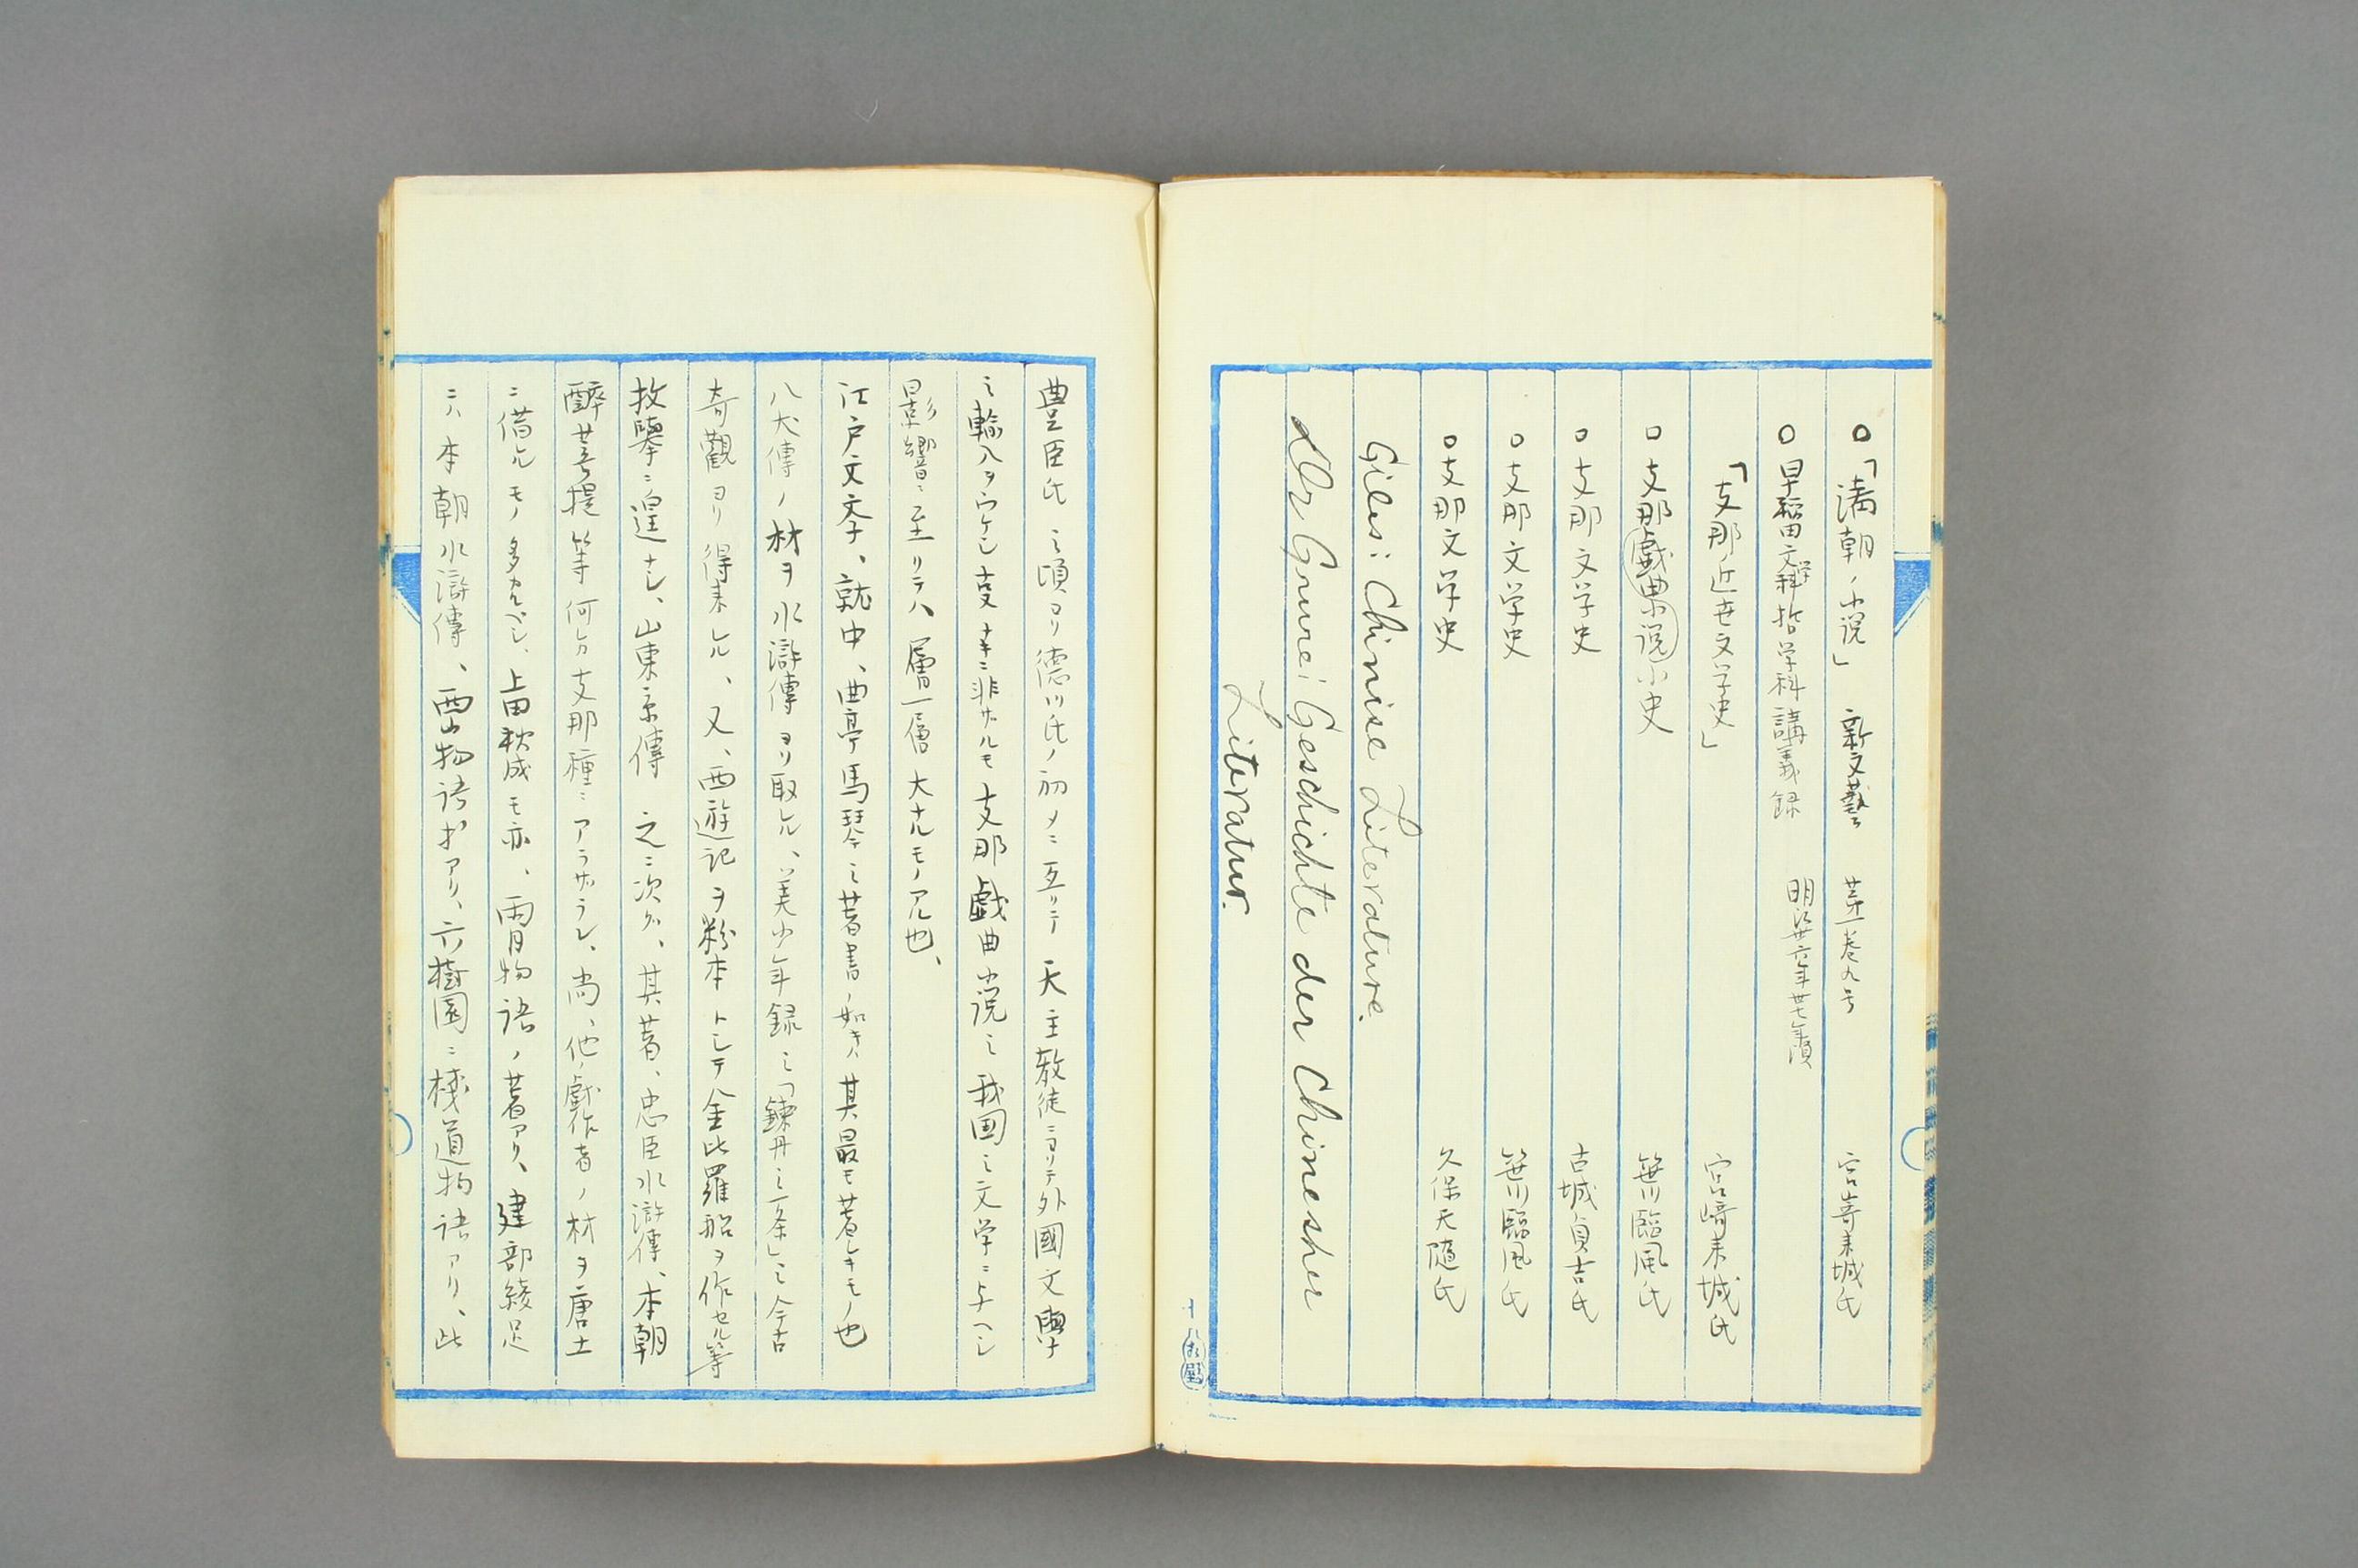 ○「満朝ノ小説」 新文藝 第一巻九号 宮崎来城氏
○早稲田文学科哲学科講義録 明治卅六年卅七年頃
「支那近世文学史」 宮崎来城氏
○支那戯曲小説小史 笹川臨風氏
○支那文学史 古城貞吉氏
○支那文学史 笹川臨風氏
○支那文学史 久保天随氏
Giles: Chinise Literature.
Dr Grure: Geschichte der Chinesher
Literatur.
十八公堂
豊臣氏之頃ヨリ徳川氏ノ初メニ亙リテ天主教徒ニヨリテ外國文學
之輸入ヲウケシ事ナキニ非ザルモ支那戯曲小説之我国之文学ニ与ヘシ
影響ニ至リテハ層一層大ナルモノアル也、
江戸文学、就中、曲亭馬琴之著書ノ如キハ其最モ著シキモノ也
八犬傳ノ材ヲ水滸傳ヨリ取レル、美少年録之「錬丹之一条」之今古
奇觀ヨリ得来レル、又、西遊記ヲ粉本トシテ金比羅船ヲ作セル等
枚擧ニ遑ナシ、山東京傳之ニ次グ、其著、忠臣水滸傳、本朝
酔菩提等何レカ支那種ニアラザラン、尚、他ノ戯作者ノ材ヲ唐土
ニ借ルモノ多カルベシ、上田秋成モ亦、雨月物語ノ著アリ、建部綾足
ニハ本朝水滸傳、西山物語ガアリ、六樹園ニ棧道物語アリ、此